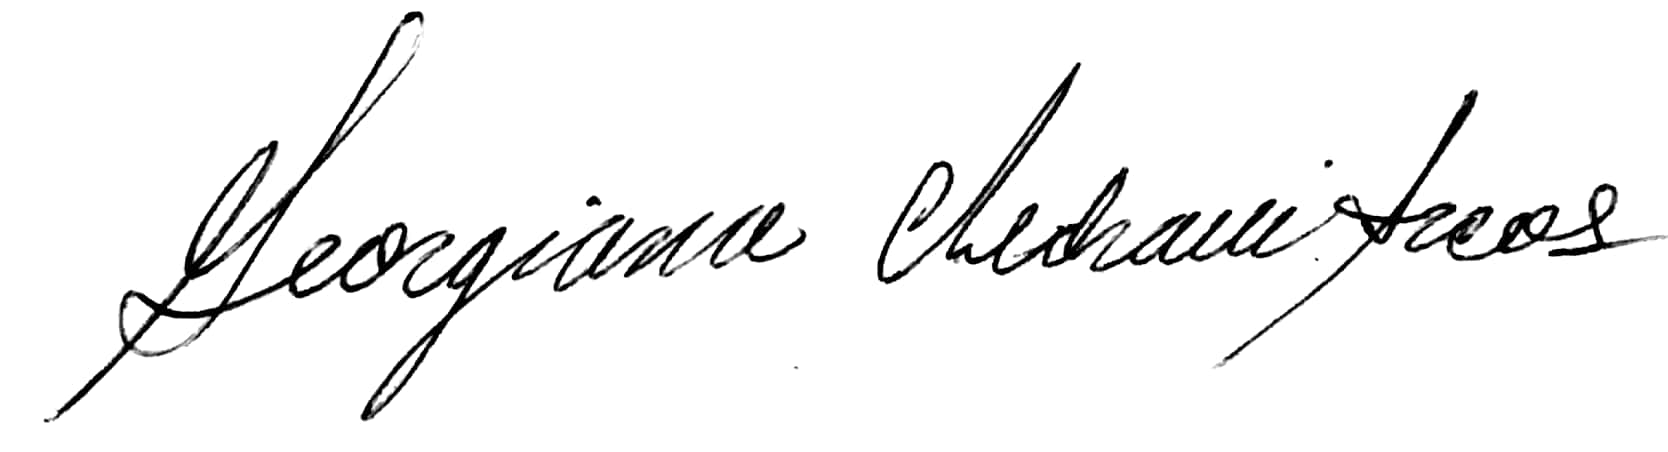 Georgiana Chedraui Arcos